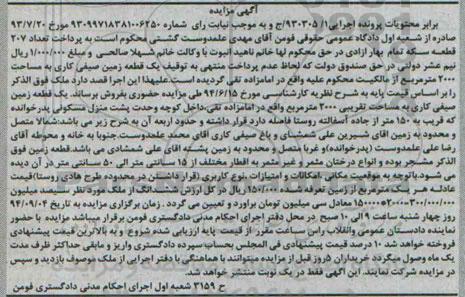 آگهی مزایده
برابر محتویات پرونده اجرایی ۹۳۰۳۰۵/ج و به موجب نیابت رای شماره ۹۳۰۹۹۷۱۸۳۸۱۰۰۶۲۵۰ مورخ ۹۳/۷/۲۰
صادره از شعبه اول دادگاه عمومی حقوقی فومن آقای مهدی علمدوست گشتی محکوم است به پرداخت تعداد ۲۰۷
قطعه سکه تمام بهار آزادی در حق محکوم لها خانم ناهید با وکالت خانم شهلا صالحی و مبلغ ۱/۰۰۰/۰۰۰ ریال
نیم عشر دولتی در حق صندوق دولت که لحاظ عدم پرداخت منتهی به توقیف یک قطعه زمین صیفی کاری به مساحت
۲۰۰۰ مترمربع از مالکیت محکوم علیه واقع در امامزاده تقی گردیده است. علیهذا این اجرا قصد دارد ملک فوق الذکر
را بر اساس قیمت پایه به شرح نظریه کارشناسی مورخ ۹۴/۶/۱۵ طی مزایده حضوری بفروش برساند. یک قطعه زمین
صیفی کاری به مساحت تقریبی ۲۰۰۰ مترمربع واقع در امامزاده تقی، داخل کوچه وحدت پشت منزل مسکونی پدرخوانده
که قریب به ۱۵۰ متر از جاده آسفالته روستا فاصله دارد قرار داشته و حدود اربعه آن به شرح زیر می باشد: شمالا متصل
و محدود به زمین آقای شیرین علی شمشادی و باغ صیفی کاری آقای محمد علمدوست جنوبا به خانه و محوطه آقای
رضا علی علمدوست (پدرخوانده) غربا متصل و محدود به زمین پشته آقای علی شمشادی می باشد. قطعه زمین فوق
الذکر مشجر بوده و انواع درختان مثمر و غیر مثمر به اقطار مختلف از ۱۵ سانتی متر الی ۵۰ سانتی متر در آن دیده
می شود. با توجه به موقعیت مکانی، امکانات و امتیازات، نوع کاربری (قرار داشتن در محدوده طرح هادی روستا) قیمت
عادله هر یک مترمربع از زمین تعرفه شده ۱۵۰/۰۰۰ ریال در کل ارزش ششدانگ از ملک مورد نظر سیصد میلیون
۳۰۰/۰۰۰/۰۰۰=۲۰۰۰*۱۵۰۰۰۰ معادل سی میلیون تومان برآورد و تعیین می گردد. زمان برگزاری مزایده به تاریخ ۹۴/۰۹/۰۴
روز چهار شنبه ساعت ۹ الی ۱۰ صبح در محل دفتر اجرای احکام مدنی دادگستری فومن برقرار میباشد مزایده با حضور
نماینده دادستان عمومی وانقلاب راس ساعت مقرر از قیمت پایه ارزیابی شده شروع و به بالاترین قیمت پیشنهادی
فروخته خواهد شد ۱۰ درصد قیمت پیشنهادی فی المجلس بحساب سپرده دادگستری واریز و مابقی حداکثر ظرف مدت
یک ماه وصول میگردد خریداران ۵ روز قبل از مزایده میتوانند با هماهنگی با دفتر اجرایی از ملک موصوف بازدید و سپس
در مزایده شرکت نمایند. این آگهی فقط در یک نوبت منتشر خواهد شد.
ح ۳۱۵۹ شعبه اول اجرای احکام مدنی دادگستری فومن